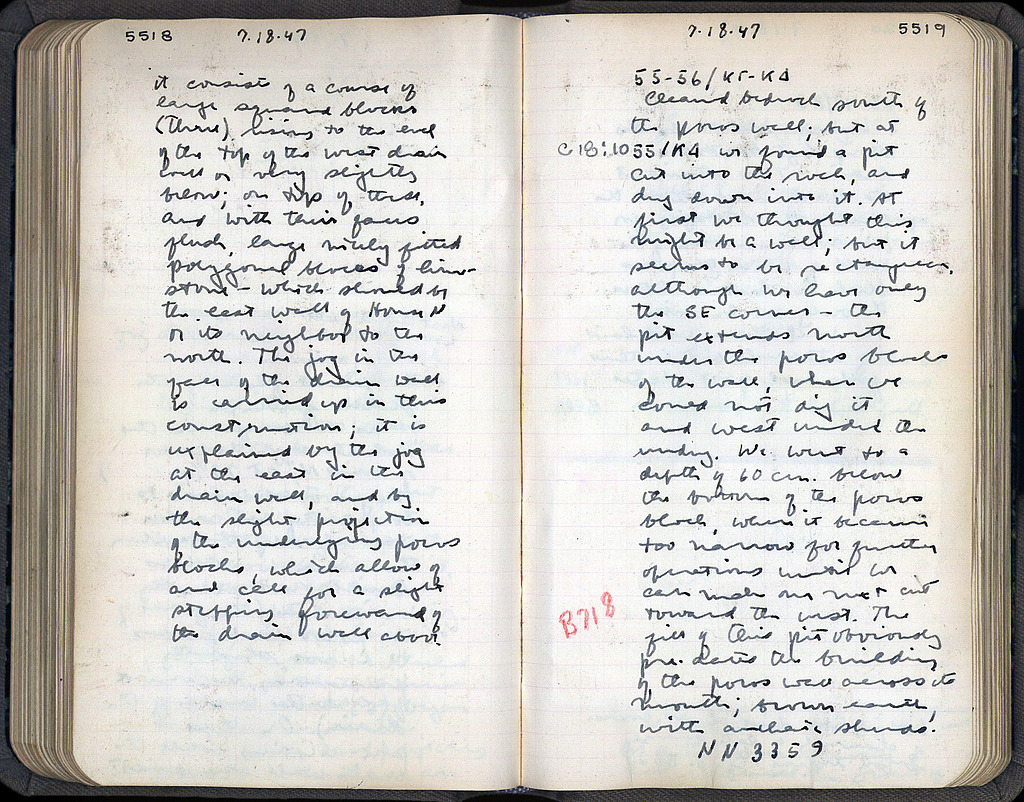 5518 7.18.47
it consists of a course of
large squared blocks
(three) rising to the level
of the top of the west drain
wall or very slightly
below; on top of these,
and with their faces
flush, large nicely fitted
polygonal blocks of lime-
stone - which should be
the east wall of House N
or its neighbor to the
north. The jog in the
face of the drain wall
is carried up in this
construction; it is
explained by the jog
at the east in the
drain wall, and by
the slight projection
of the underlying poros
blocks, which allow of
and call for a slight
stepping foreward of
the drain wall above.
7.18.47 5519
55-56/ΚΓ-ΚΔ
Cleared bedrock south of
the poros wall; but at
C 18:10 55/ΚΔ we found a pit
cut into the rock, and
dug down into it. At
first we thought this
might be a well; but it
seems to be rectangular,
although we have only
the SE corner - the
pit extends north
under the poros blocks
of the wall, where we
could not dig it
and west under the
undug. We went to a
depth of 60 cm. below
the bottom of the poros
block, where it became
too narrow for further
operations until we
can make our next cut
toward the west. The
fill of this pit obviously
pre-dates the building
of the poros wall across its
mouth; brown earth,
with archaic sherds.
B718
NN 3359